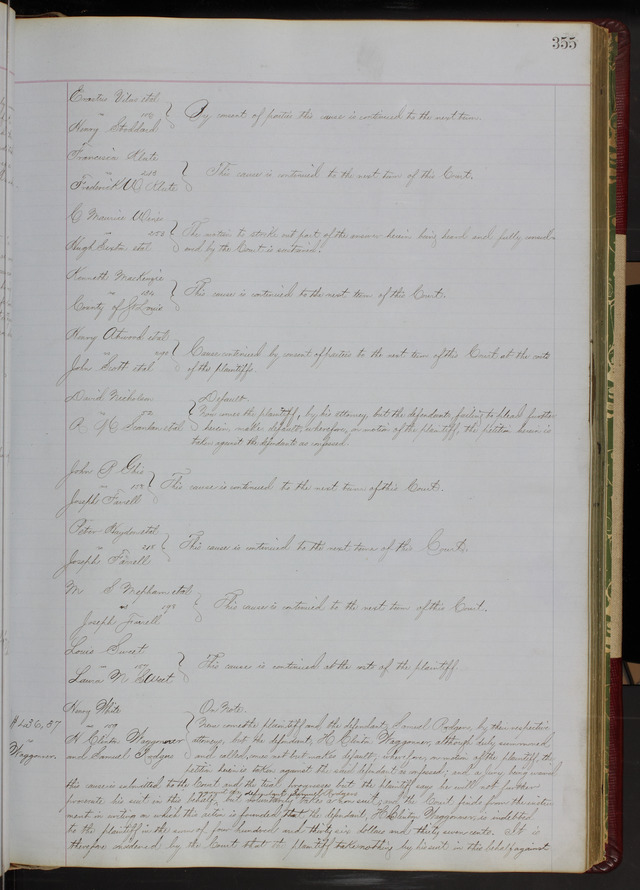 355
Erastus Vilas et al
By consent of parties this cause is continued to the next term.
vs
Henry Stoddard
Francisca Klute
vs 210
This cause is continued to the next term of this Court.
Frederick W Klute
C Maurice
vs 252
The motion to strike out part of the answer herein being heard and fully
Hugh et al
and by the Court is sustained.
Kenneth MacKenzie
vs
This cause is continued to the next term of this Court.
County of St Louis
Henry Atwood et al
vs
Cause continued by consent of parties to the next term of this Court at the costs
John Scott et al
of the plaintiffs.
David Nicholson
Default.
vs
Now comes the plaintiff, by his attorney, but the defendants, failing to plead further
R et al
herein, make default, wherefore, on motion of the plaintiff, the petition herein is
taken against the defendants as confessed.
John P Ghio
vs
This cause is continued to the next term of this Court.
Joseph Farrell
Peter et al
vs 218
This cause is continued to the next term of this Court.
Joseph Farrell
Wm S Mepham et al
vs 198
This cause is continued to the next term of this Court.
Joseph Farrell
Louis Sweet
vs 157
This cause is continued at the costs of the plaintiff.
Laura M Sweet
Henry White
On Note.
$436,37
vs 109
Now comes the plaintiff and the defendant, Samuel Rodgers, by their respective
vs
H Clinton Waggoner
attorneys, but the defendant, H Clinton Waggoner, although duly summoned
Waggoner.
and Samuel Rodgers
and called, comes not but makes default; wherefore, on motion of the plaintiff, the
petition herein is taken against the said defendant as confessed; and a jury being waived
this cause is submitted to the Court and the trial progresses but the plaintiff says he will not further
prosecute his suit in this behalf, but voluntarily takes a non suit; and the Court finds from the instru-
ment in writing on which this action is founded that the defendant, H Clinton Waggoner, is indebted
to the plaintiff in the sum of four hundred and thirty six dollars and thirty seven cents. It is
therefore considered by the Court that the plaintiff take nothing by his suit in this behalf against